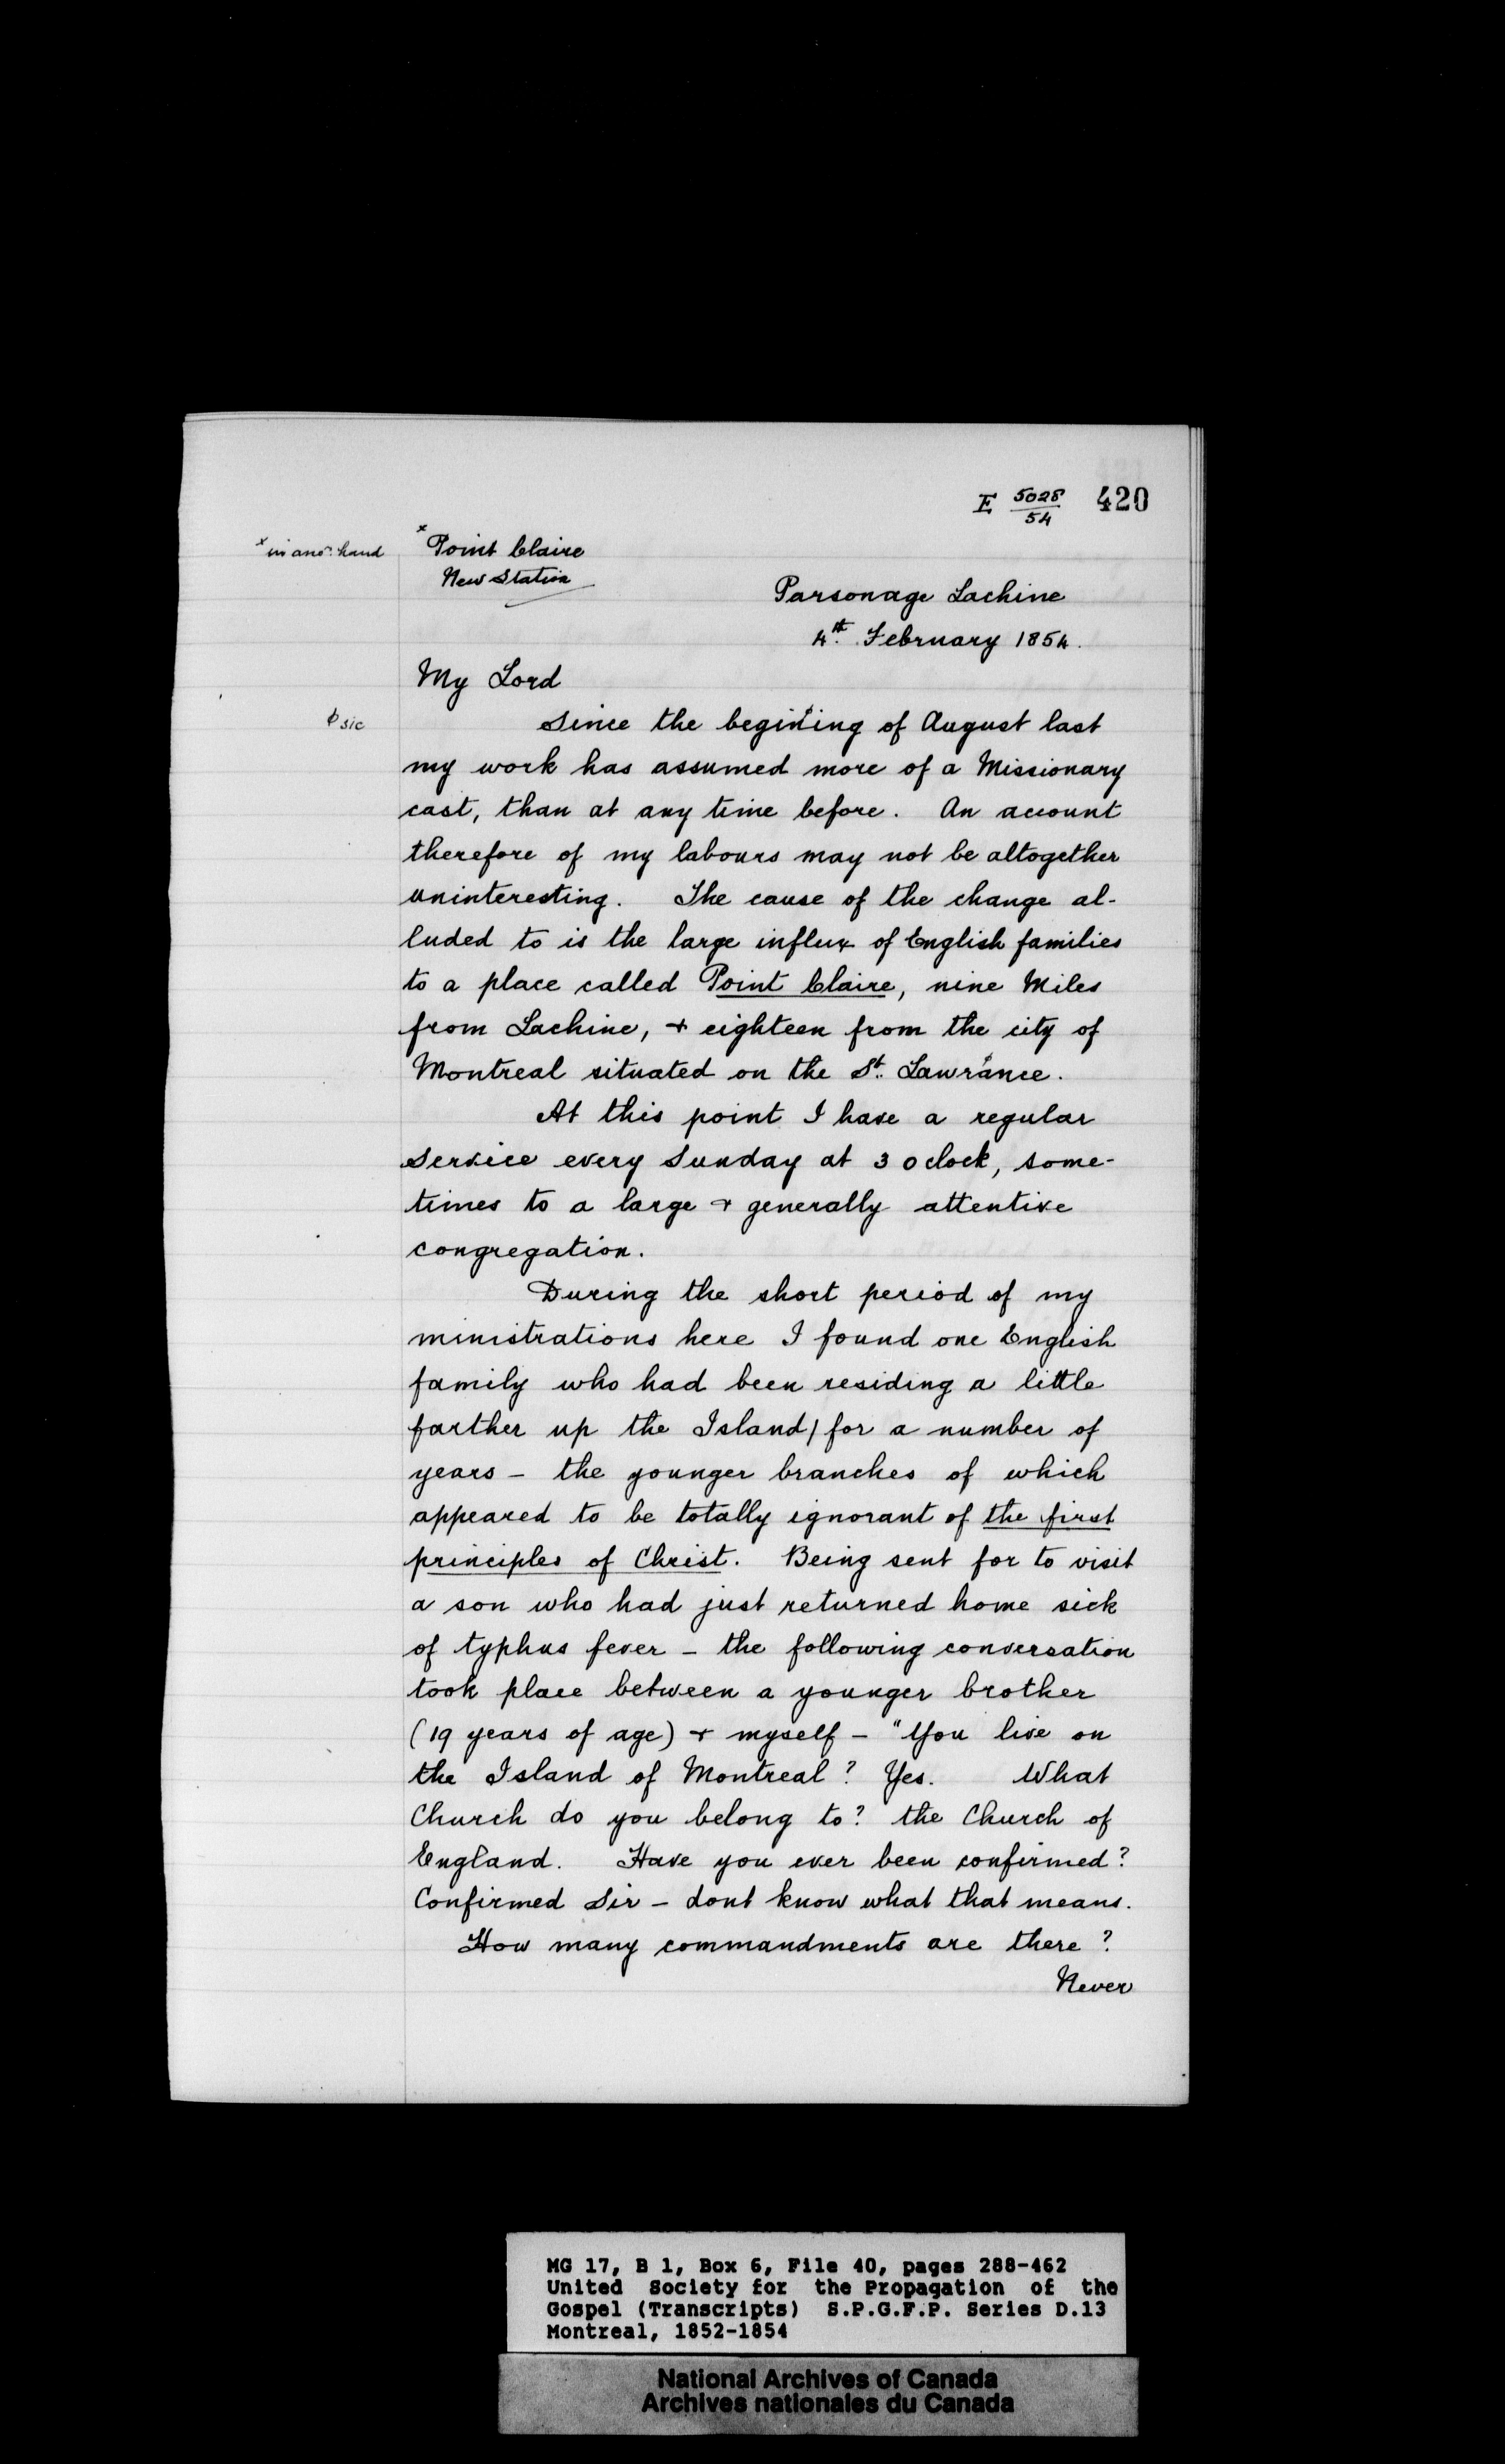 E 5028/54 420
x in ano.r hand
x Point Claire
New Station
Parsonage Lachine
4th. February 1854.
My Lord
ϕ sic
Since the begining of August last
my work has assumed more of a Missionary
cast, than at any time before. An account
therefore of my labours may not be altogether
uninteresting. The cause of the change al-
luded to is the large influx of English families
to a place called Point Claire, nine Miles
from Lachine, + eighteen from the city of
Montreal situated on the St. Lawrance.
At this point I have a regular
Service every Sunday at 3 oclock, some-
times to a large + generally attentive
congregation.
During the short period of my
ministrations here I found one English
family who had been residing a little
farther up the Island/ for a number of
years – the younger branches of which
appeared to be totally ignorant of the first
principles of Christ. Being sent for to visit
a son who had just returned home sick
of typhus fever – the following conversation
took place between a younger brother
(19 years of age) + myself – "You live on
the Island of Montreal? Yes. What
Church do you belong to? the Church of
England. Have you ever been confirmed?
Confirmed Sir – dont know what that means.
How many commandments are there?
Never
MG 17, B 1, Box 6, File 40, pages 288-462
United Society for the Propagation of the
Gospel (Transcripts) S.P.G.F.P. Series D.13
Montreal, 1852-1854
National Archives of Canada
Archives nationales du Canada